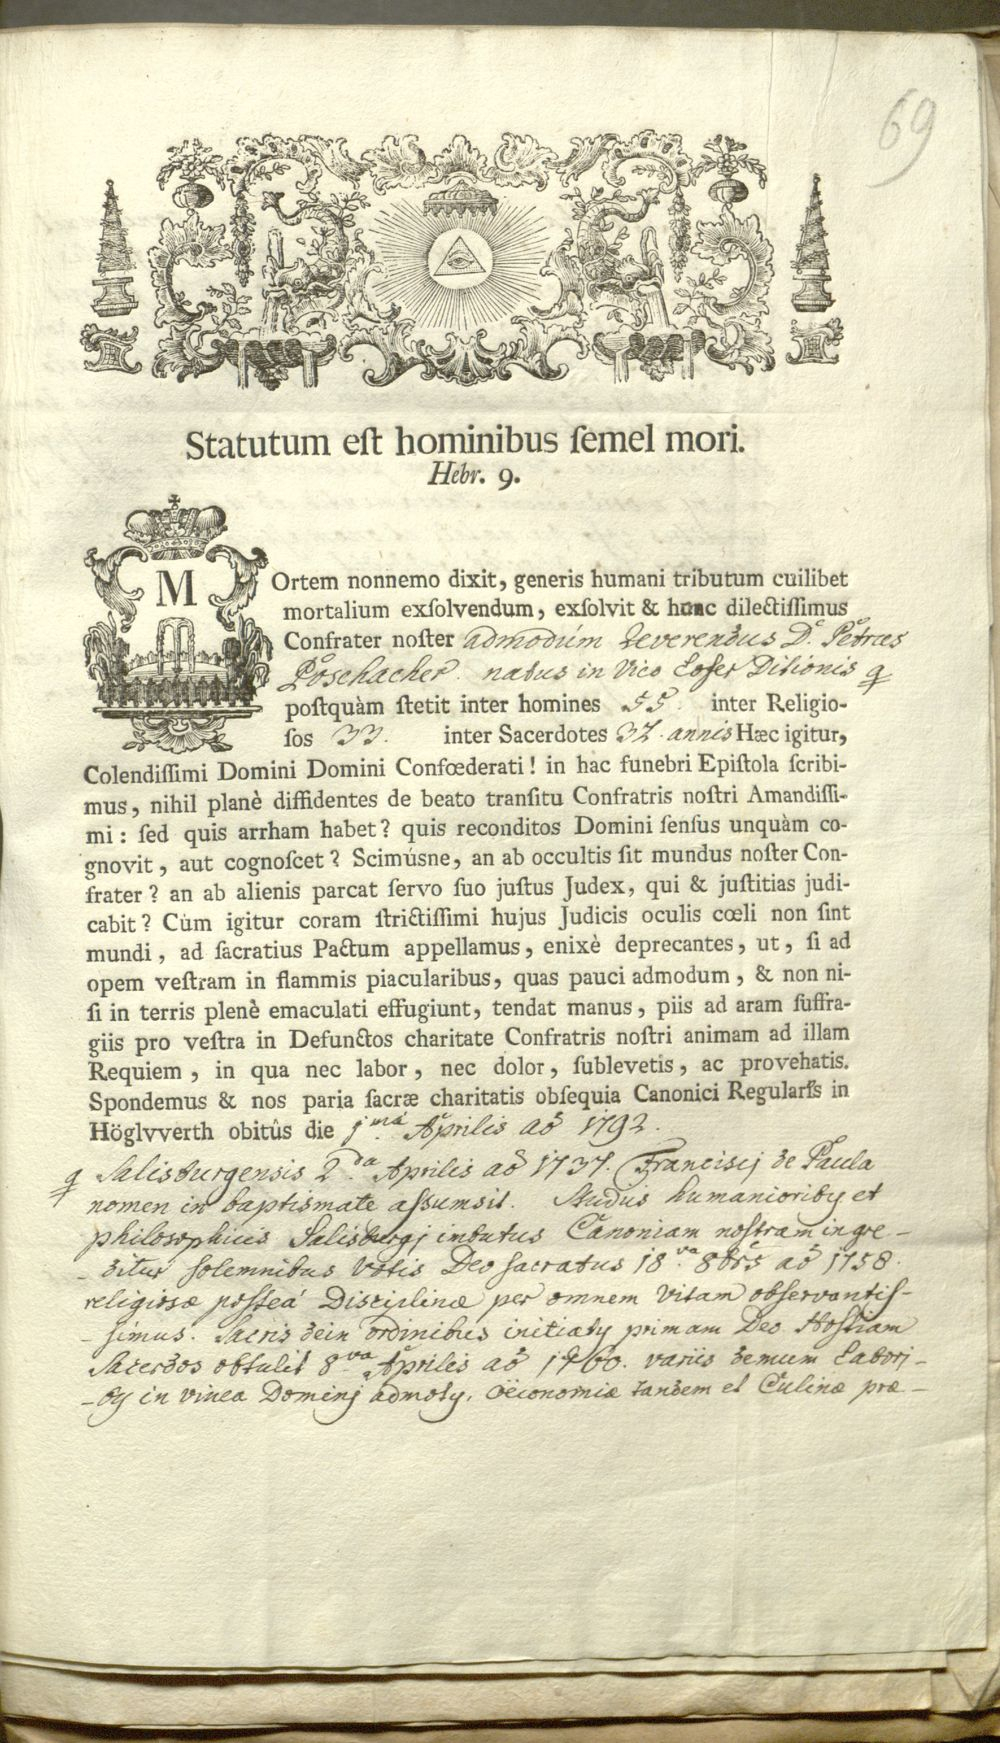 69
Statutum eſt hominibus ſemel mori.
Hebr. 9.
MOrtem nonnemo dixit, generis humani tributum cuilibet
mortalium exſolvendum, exſolvit & hunc dilectiſſimus
Confrater noſter admodúm Reverendus D. Petrus
Poschacher. natus in Vico Loser Ditionis
poſtquàm ſtetit inter homines 55. inter Religio-
ſos 33. inter Sacerdotes 32. annis Hæc igitur,
Colendiſſimi Domini Domini Confœderati! in hac funebri Epiſtola ſcribi-
mus, nihil planè diffidentes de beato tranſitu Confratris noſtri Amandiſſi-
mi: ſed quis arrham habet? quis reconditos Domini ſenſus unquàm co-
gnovit, aut cognoſcet? Scimúsne, an ab occultis ſit mundus noſter Con-
frater? an ab alienis parcat ſervo ſuo juſtus Judex, qui & juſtitias judi-
cabit? Cùm igitur coram ſtrictiſſimi hujus Judicis oculis cœli non ſint
mundi, ad ſacratius Pactum appellamus, enixè deprecantes, ut, ſi ad
opem veſtram in flammis piacularibus, quas pauci admodum, & non ni-
ſi in terris plenè emaculati effugiunt, tendat manus, piis ad aram ſuffra-
giis pro veſtra in Defunctos charitate Confratris noſtri animam ad illam
Requiem, in qua nec labor, nec dolor, ſublevetis, ac provehatis.
Spondemus & nos paria ſacræ charitatis obſequia Canonici Regulariſs in
Höglvverth obitûs die jmá Aprilis aō 1792.
Salisburgensis 2da Aprilis aō 1737. Francisij de Paula
nomen in baptismate aſsumsit. Studiis humanioriby et
philosophicis Salisburgj imbutus Canoniam noſtram ingre-
- ditur solemnibus Votis Deo sacratus 18va 8bris aō 1758.
religiosæ posteá Disciplinæ per omnem vitam obſervantiſ-
- ſimus. Sacris dein ordinibus initiaty primam Deo Hoſtiam
Sacerdos obtulit 8va Aprilis aō 1760. variis demum Labori-
- by in vinea Dominj admoty, Oëconomiæ tandem et Culinæ præ-